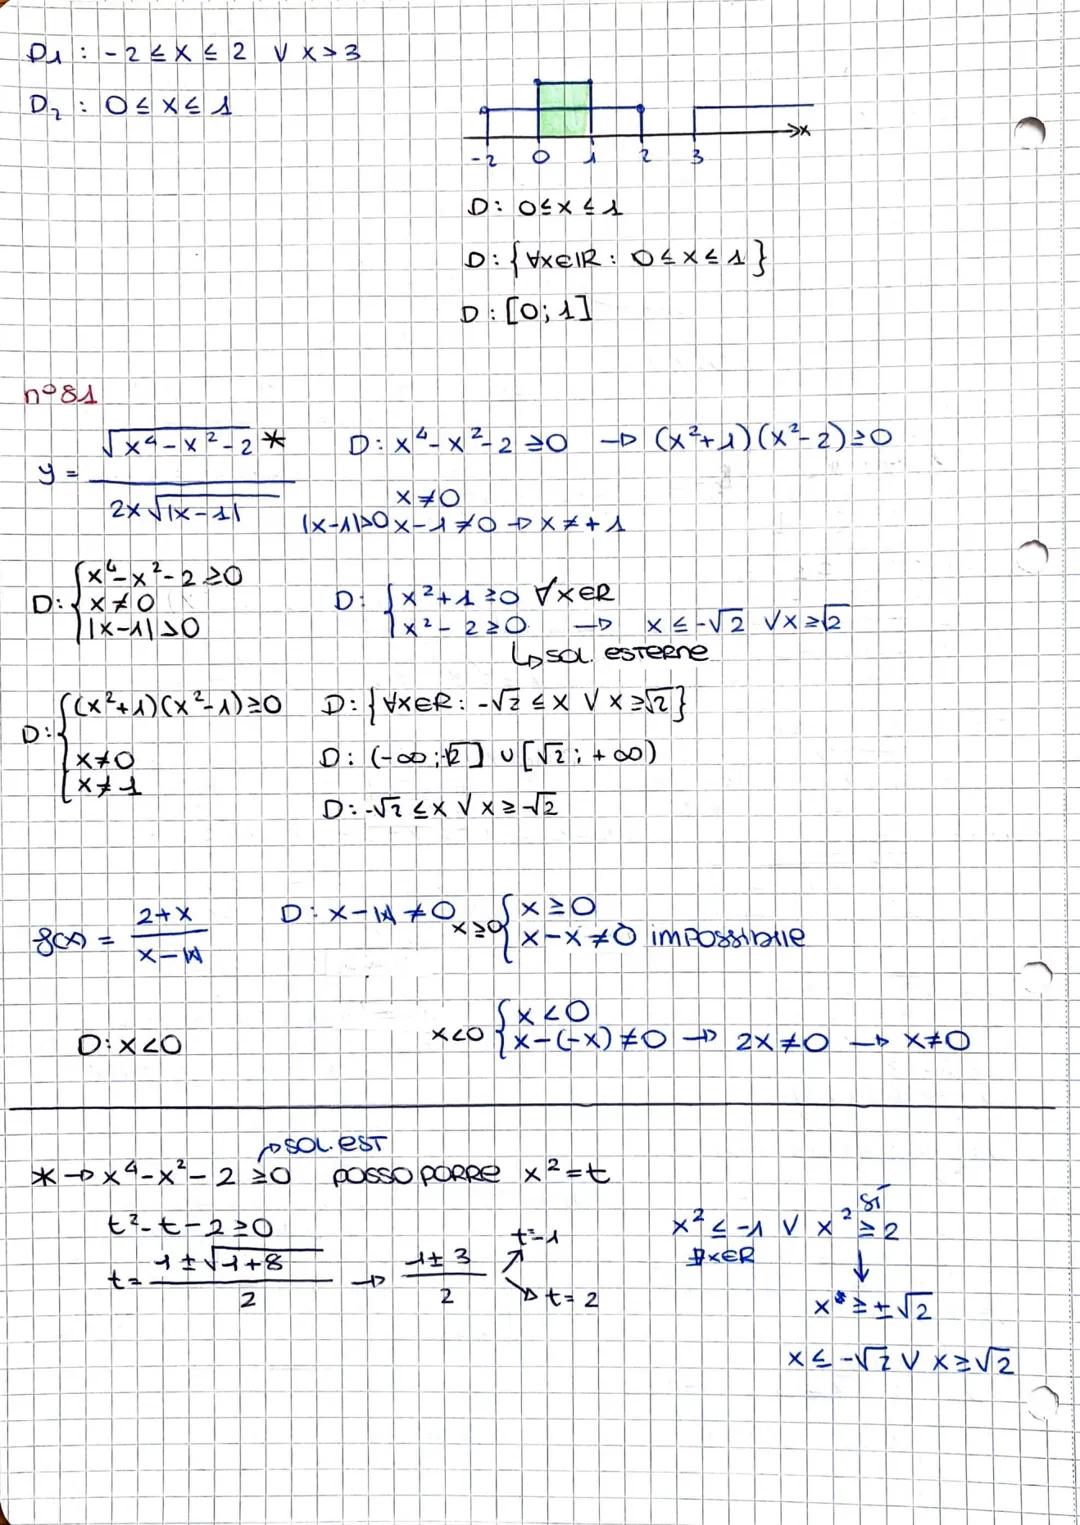 D1 : -2 ≤ x ≤ 2 ∨ x > 3
D2 : 0 ≤ x ≤ 1
-2 0 1 2 3 x
D: 0 ≤ x ≤ 1
D: {∀x∈IR : 0 ≤ x ≤ 1}
D : [0; 1]
n°81
y = √(x⁴ - x² - 2) * / 2x √|x-1|
D: x⁴ - x² - 2 ≥ 0 → (x²+1)(x²-2) ≥ 0
x ≠ 0
|x-1|>0 x-1 ≠ 0 → x ≠ +1
D: { x⁴ - x² - 2 ≥ 0
x ≠ 0
|x-1| > 0
D: { x²+1 ≥ 0 ∀x∈R
x² - 2 ≥ 0 → x ≤ -√2 ∨ x ≥ √2
↳ SOL. ESTERNE
D: { (x²+1)(x²-1) ≥ 0
x ≠ 0
x ≠ 1
D: {∀x∈R : -√2 ≤ x ∨ x ≥ √2}
D: (-∞; √2] ∪ [√2; +∞)
D: -√2 ≤ x ∨ x ≥ -√2
f(x) = 2+x / x-|x|
D: x - |x| ≠ 0
x≥0 { x ≥ 0
x - x ≠ 0 IMPOSSIBILE
D: x < 0
x<0 { x < 0
x-(-x) ≠ 0 → 2x ≠ 0 → x ≠ 0
SOL. EST
* → x⁴ - x² - 2 ≥ 0 POSSO PORRE x² = t
t² - t - 2 ≥ 0
t = 1 ± √1+8 / 2 → 1 ± 3 / 2
t=-1
t = 2
x² ≤ -1 ∨ x² ≥ 2
SÌ
∄x∈R
x ≥ ±√2
x ≤ -√2 ∨ x ≥ √2